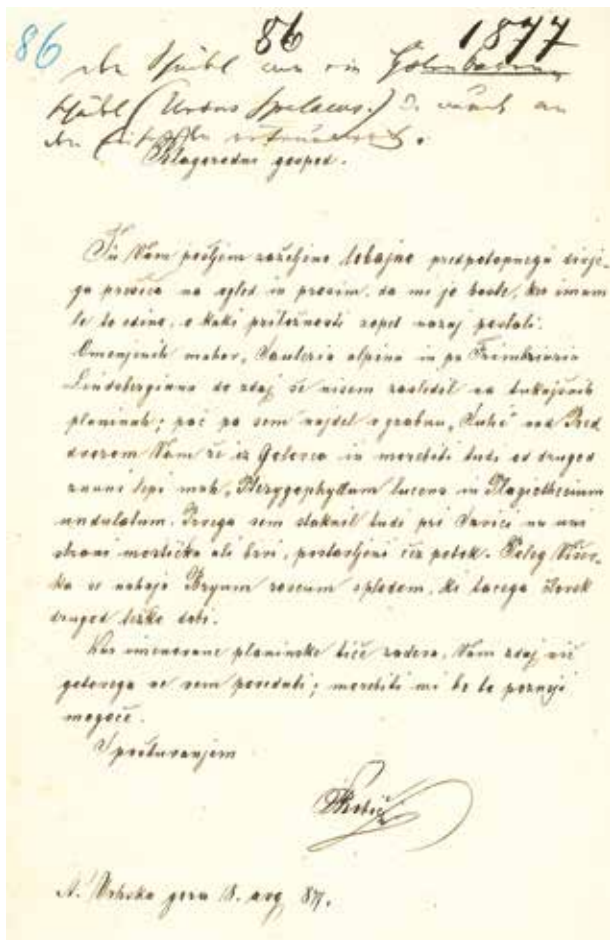 86 86 1877
Höhlenbären
(Ursus spelaeus.)
Blagorodni gospod.
Tu Vam pošljem zaželjeno lobajno predpotopnega divje-
ga prešiča na ogled in prosim, da mi jo boste, ker imam
le to edino, o kaki priložnosti zopet nazaj poslali.
Omenjenih mahov, Sauteria alpina in pa Fimbriaria
Lindebergiana do zdaj še nisem zasledil na tukajšnih
planinah; pač pa sem najdel v grabnu „Suhi" nad Pred
dvorom Vam že iz Golovca in morebiti tudi od drugod
znani lepi mah, Pterygophyllum lucens in Plagiothecium
undulatum. Prvega sem staknil tudi pri Savici na uni
strani mostička ali brvi, postavljeni čez potok. Poleg
se nahaja Bryum roseum s plodom, ki tacega človek
drugod težko dobi.
Kar imenovane planinske tiče zadeva, Vam zdaj nič
gotovega ne vem povedati; morebiti mi bo to pozneji
mogoče.
S poštovanjem
SRobič
gora 18. avg. 87.